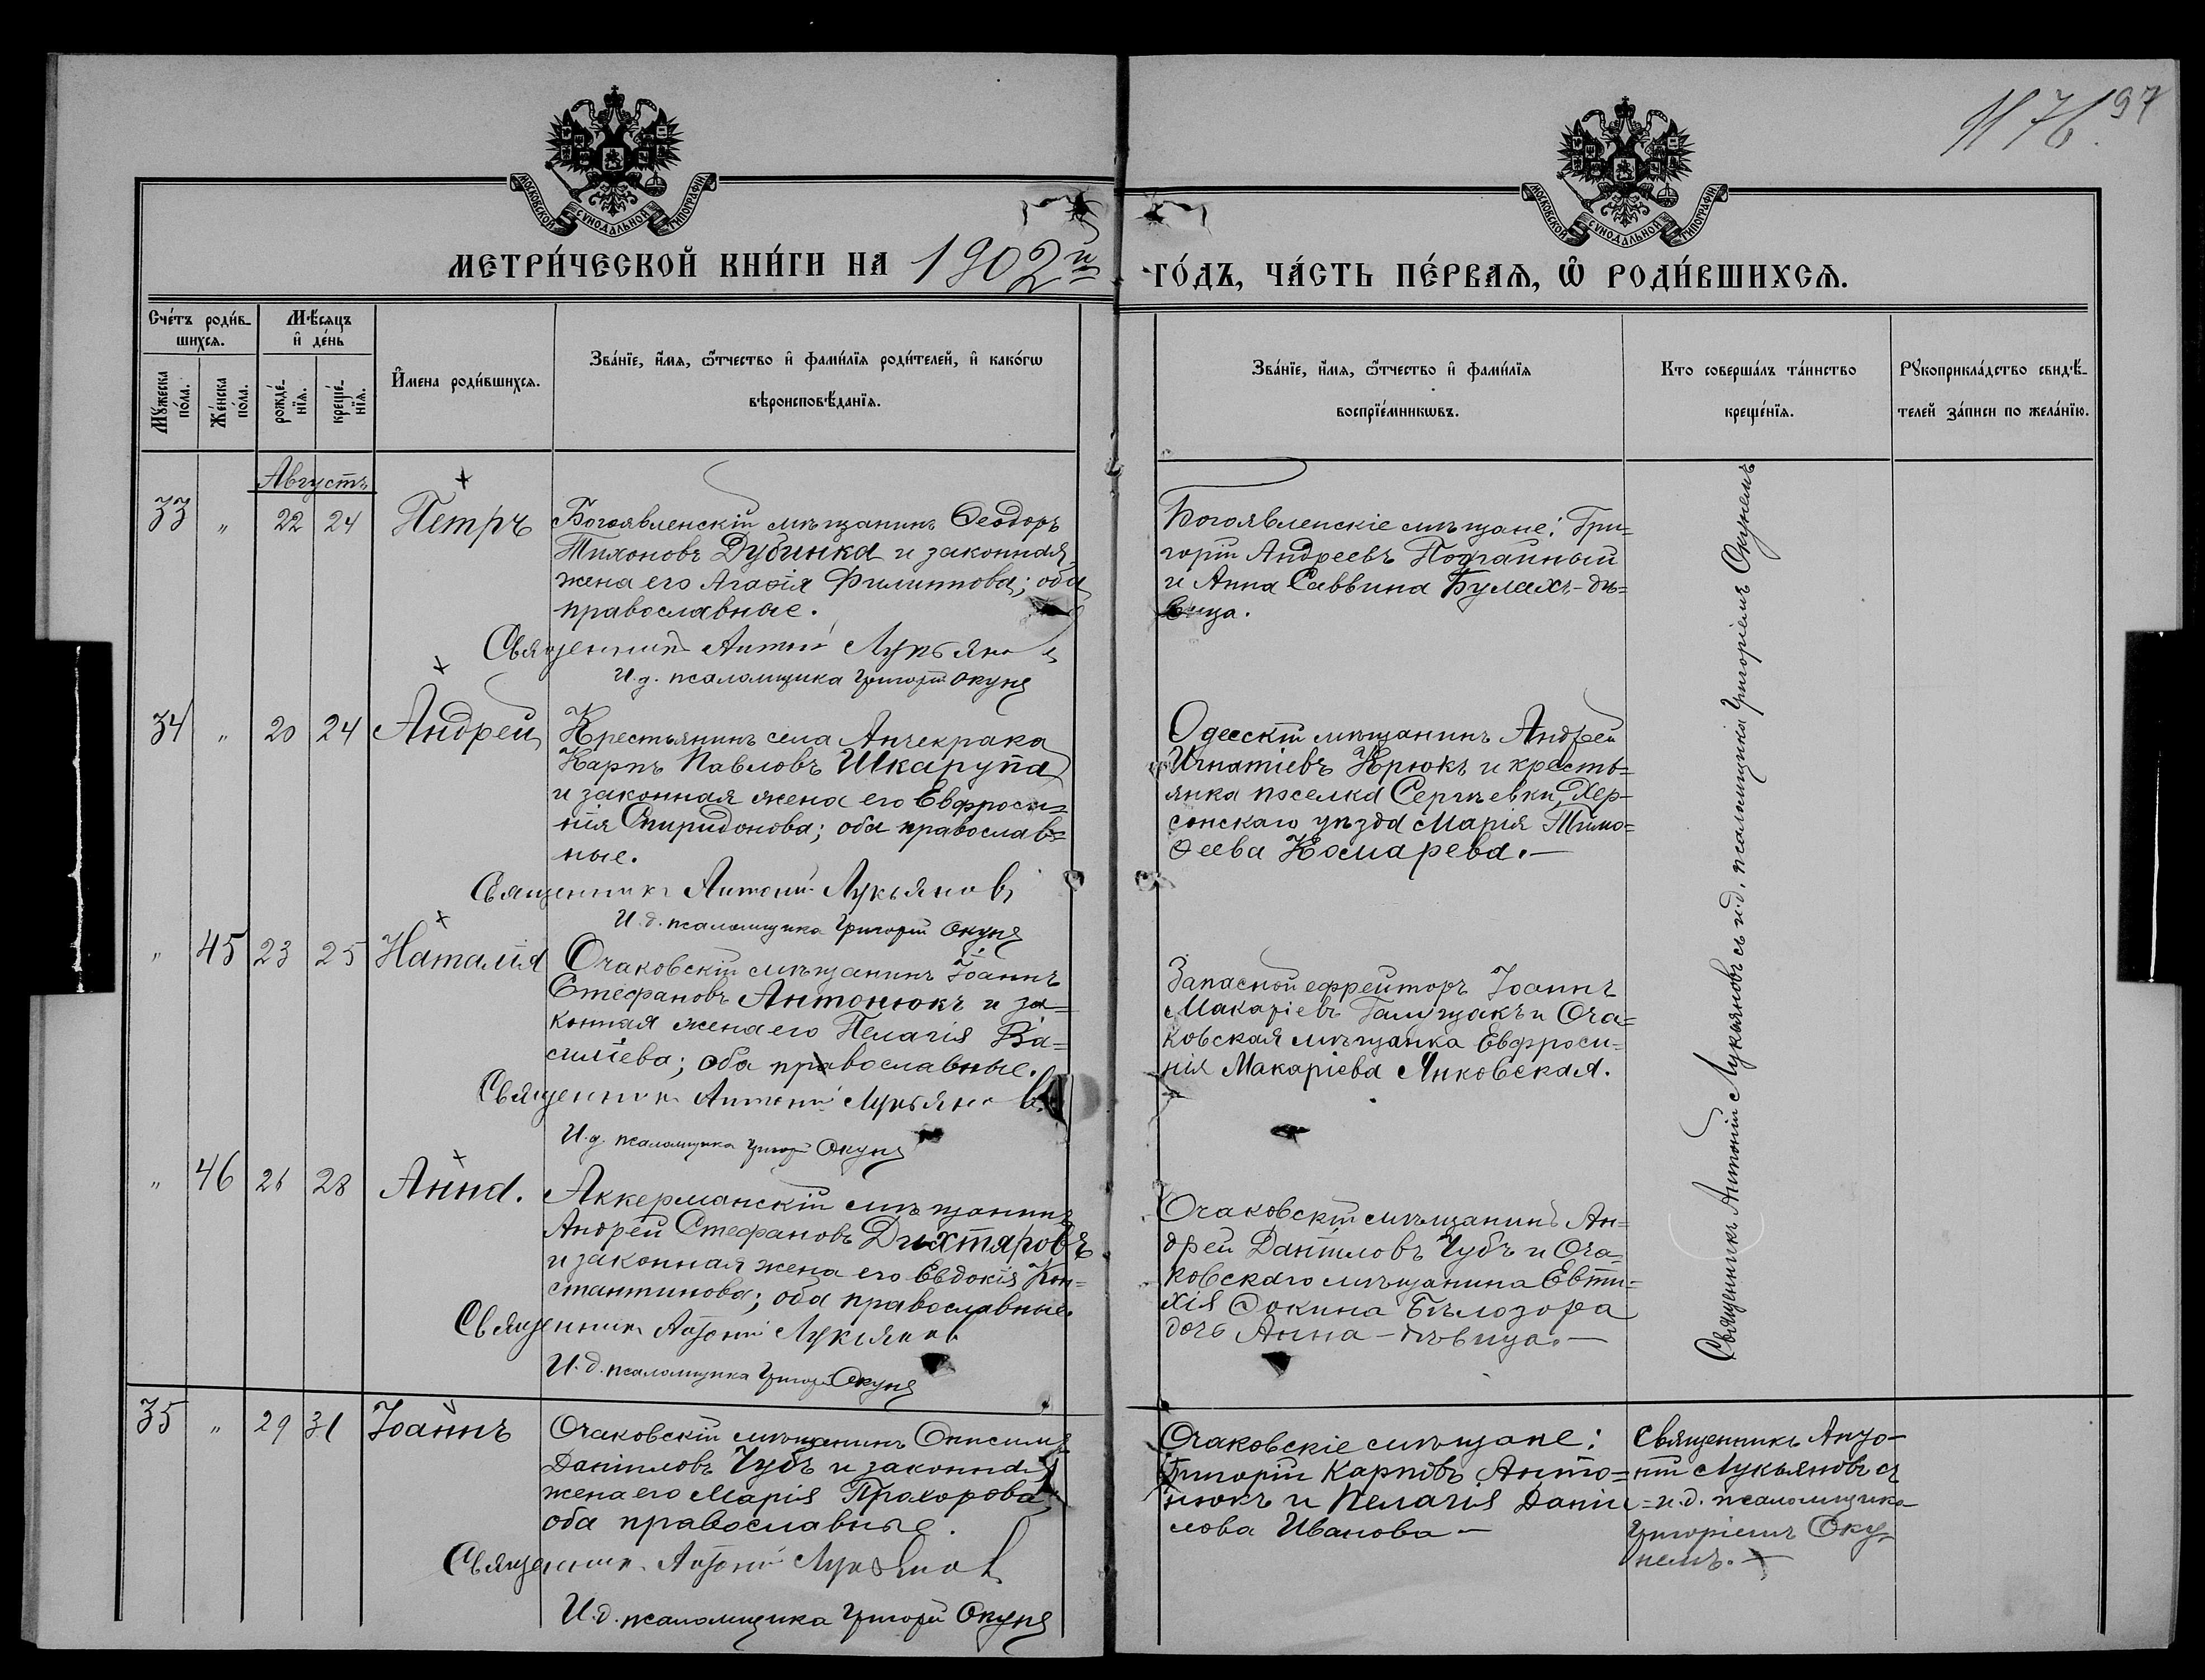 97
1176
МОСКОВСКОЙ СѴНОДАЛЬНОЙ ТИПОГРАФІИ
МОСКОВСКОЙ СѴНОДАЛЬНОЙ ТИПОГРАФІИ
МЕТРИ́ЧЕСКОЙ КНИ́ГИ НА 1902й ГО́ДЪ, ЧА́СТЬ ПЕ́РВАѦ, Ѿ РОДИ́ВШИХСѦ.
Сче́тъ роди́в-
шихсѧ.
Мѣ́сѧцъ
и҆ де́нь
Мꙋ́жеска
по́ла.
Же́нска
по́ла.
рожде́-
нїѧ.
креще́-
нїѧ.
И҆мена роди́вшихсѧ.
Зва́нїе, и҆́мѧ, ѻ҆́тчество и҆ фами́лїѧ роди́телей, и҆ како́гѡ
вѣроисповѣ́данїѧ.
Зва́нїе, и҆́мѧ, ѻ҆́тчество и҆ фами́лїѧ
воспрїе́мникѡвъ.
Кто соверша́лъ та́инство
креще́нїѧ.
Рꙋкоприкла́дство свидѣ́-
телей за́писи по жела́нїю.
Августъ
33 " 22 24 Петръ
Богоявленскій мѣщанинъ Ѳеодоръ
Тихоновъ Дубинка и законная
жена его Агаѳія Филиппова; оба
православные.
Священникъ Антоній Лукьяновъ
И.д. псаломщика Григорій Окунь
Богоявленскіе мѣщане: Гри=
горій Андреевъ Подгайный
и Анна Саввина Булахъ - дѣ=
вица.
34 " 20 24 Андрей
Крестьянинъ села Анчекрака
Карпъ Павловъ Шкарупа
и законная жена его Евфроси=
нія Спиридонова; оба православ=
ные.
Священникъ Антоній Лукьяновъ
И.д. псаломщика Григорій Окунь
Одесскій мѣщанинъ Андрей
Игнатіевъ Крюкъ и кресть=
янка поселка Сергѣевки, Хер=
сонскаго уѣзда Марія Тимо=
ѳеева Комарева.—
" 45 23 25 Наталія
Очаковскій мѣщанинъ Іоаннъ
Стефановъ Антонюкъ и за=
конная жена его Пелагія Ва=
силіева; оба православные.
Священникъ Антоній Лукьяновъ
И.д. псаломщика Григорій Окунь
Запасной ефрейторъ Іоаннъ
Макаріевъ и Оча=
ковская мѣщанка Евфроси=
нія Макаріева Янковская.
" 46 26 28 Анна.
Аккерманскій мѣщанинъ
Андрей Стефановъ Дихтяровъ
и законная жена его Евдокія Кон=
стантинова; оба православные.
Священникъ Антоній Лукьяновъ
И.д. псаломщика Григорій Окунь
Очаковскій мѣщанинъ Ан=
дрей Даніиловъ Чубъ и Оча=
ковскаго мѣщанина Евти=
хія Фокина Бѣлозора
дочь Анна - дѣвица.—
Священникъ Антоній Лукьяновъ съ и.д. псаломщика Григоріемъ Окунемъ
35 " 29 31 Іоаннъ
Очаковскій мѣщанинъ Онисимъ
Даніиловъ Чубъ и законная
жена его Марія Прохорова;
оба православные.
Священникъ Антоній Лукьяновъ
И.д. псаломщика Григорій Окунь
Очаковскіе мѣщане:
Григорій Карповъ Анто=
нюкъ и Пелагія Даніи=
лова Иванова —
Священникъ Анто-
ній Лукьяновъ съ
и.д. псаломщика
Григоріемъ Оку-
немъ.—